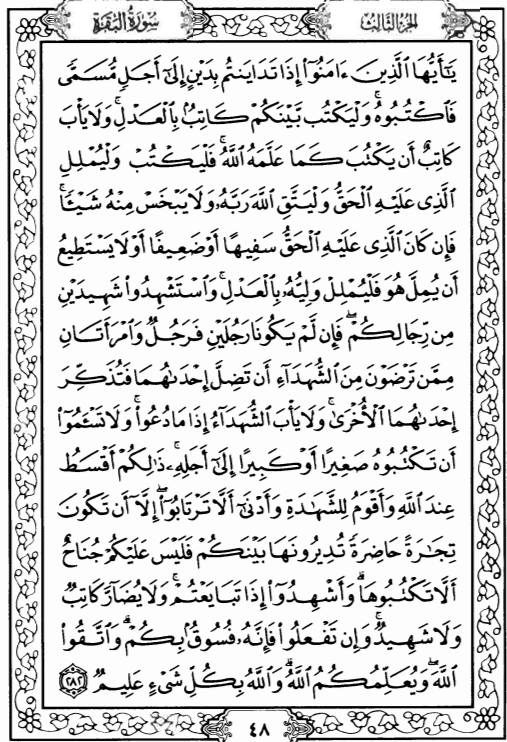 الجزء الثالث
سورة البقرة
يَـٰٓأَيُّهَا ٱلَّذِينَ ءَامَنُوٓا۟ إِذَا تَدَايَنتُم بِدَيْنٍ إِلَىٰٓ أَجَلٍ مُّسَمًّى
فَٱكْتُبُوهُ ۚ وَلْيَكْتُب بَّيْنَكُمْ كَاتِبٌۢ بِٱلْعَدْلِ ۚ وَلَا يَأْبَ
كَاتِبٌ أَن يَكْتُبَ كَمَا عَلَّمَهُ ٱللَّهُ ۚ فَلْيَكْتُبْ وَلْيُمْلِلِ
ٱلَّذِى عَلَيْهِ ٱلْحَقُّ وَلْيَتَّقِ ٱللَّهَ رَبَّهُۥ وَلَا يَبْخَسْ مِنْهُ شَيْـًٔا ۚ
فَإِن كَانَ ٱلَّذِى عَلَيْهِ ٱلْحَقُّ سَفِيهًا أَوْ ضَعِيفًا أَوْ لَا يَسْتَطِيعُ
أَن يُمِلَّ هُوَ فَلْيُمْلِلْ وَلِيُّهُۥ بِٱلْعَدْلِ ۚ وَٱسْتَشْهِدُوا۟ شَهِيدَيْنِ
مِن رِّجَالِكُمْ ۖ فَإِن لَّمْ يَكُونَا رَجُلَيْنِ فَرَجُلٌ وَٱمْرَأَتَانِ
مِمَّن تَرْضَوْنَ مِنَ ٱلشُّهَدَآءِ أَن تَضِلَّ إِحْدَىٰهُمَا فَتُذَكِّرَ
إِحْدَىٰهُمَا ٱلْأُخْرَىٰ ۚ وَلَا يَأْبَ ٱلشُّهَدَآءُ إِذَا مَا دُعُوا۟ ۚ وَلَا تَسْـَٔمُوٓا۟
أَن تَكْتُبُوهُ صَغِيرًا أَوْ كَبِيرًا إِلَىٰٓ أَجَلِهِۦ ۚ ذَٰلِكُمْ أَقْسَطُ
عِندَ ٱللَّهِ وَأَقْوَمُ لِلشَّهَـٰدَةِ وَأَدْنَىٰٓ أَلَّا تَرْتَابُوٓا۟ ۖ إِلَّآ أَن تَكُونَ
تِجَـٰرَةً حَاضِرَةً تُدِيرُونَهَا بَيْنَكُمْ فَلَيْسَ عَلَيْكُمْ جُنَاحٌ
أَلَّا تَكْتُبُوهَا ۗ وَأَشْهِدُوٓا۟ إِذَا تَبَايَعْتُمْ ۚ وَلَا يُضَآرَّ كَاتِبٌ
وَلَا شَهِيدٌ ۚ وَإِن تَفْعَلُوا۟ فَإِنَّهُۥ فُسُوقٌۢ بِكُمْ ۗ وَٱتَّقُوا۟
ٱللَّهَ ۖ وَيُعَلِّمُكُمُ ٱللَّهُ ۗ وَٱللَّهُ بِكُلِّ شَىْءٍ عَلِيمٌ ٢٨٢
٤٨